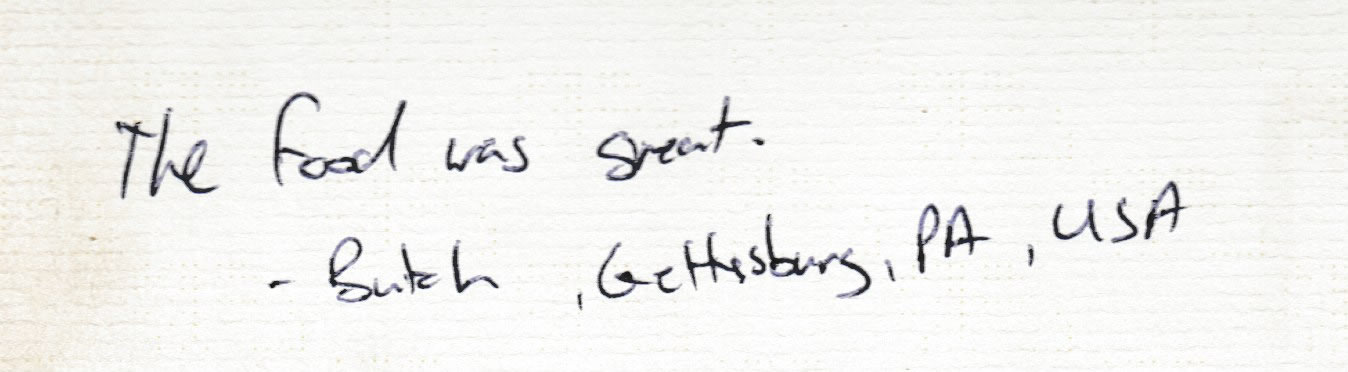 The food was great.
- Butch, Gettysburg, PA, USA